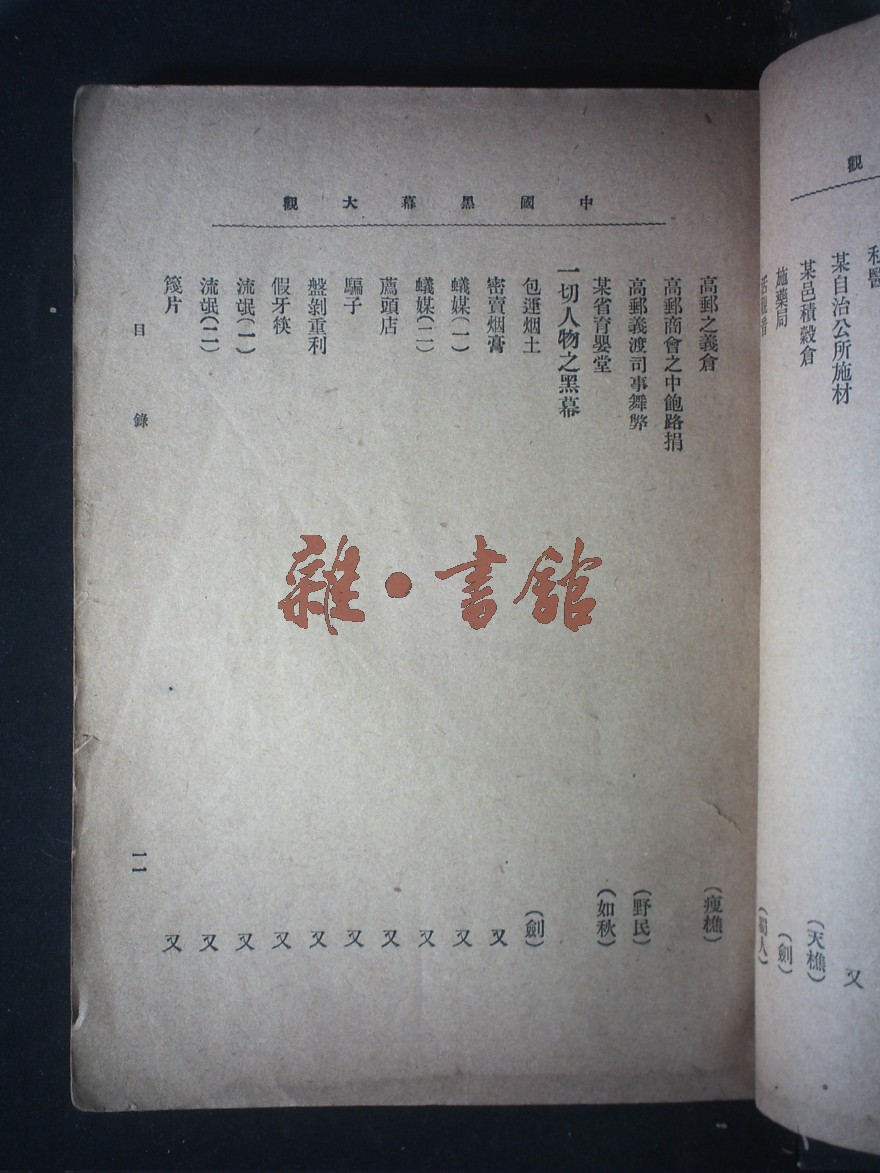 觀
某自治公所施材 又
某邑積穀倉 (天樵)
施藥局 (劍)
中國黑幕大觀
高郵之義倉 (瘦樵)
高郵商會之中飽路捐
高郵義渡司事舞弊 (野民)
某省育嬰堂 (如秋)
一切人物之黑幕
包運烟土 (劍)
密賣烟膏 又
蟻媒(一) 又
蟻媒(二) 又
薦頭店 又
騙子 又
盤剝重利 又
假牙筷 又
流氓(一) 又
流氓(二) 又
篾片 又
目錄 一一
雜·書館